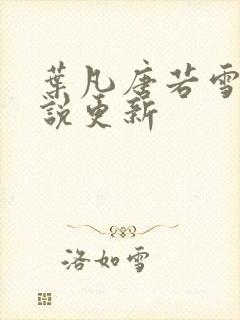 葉凡唐若雪
說更新
洛如雪